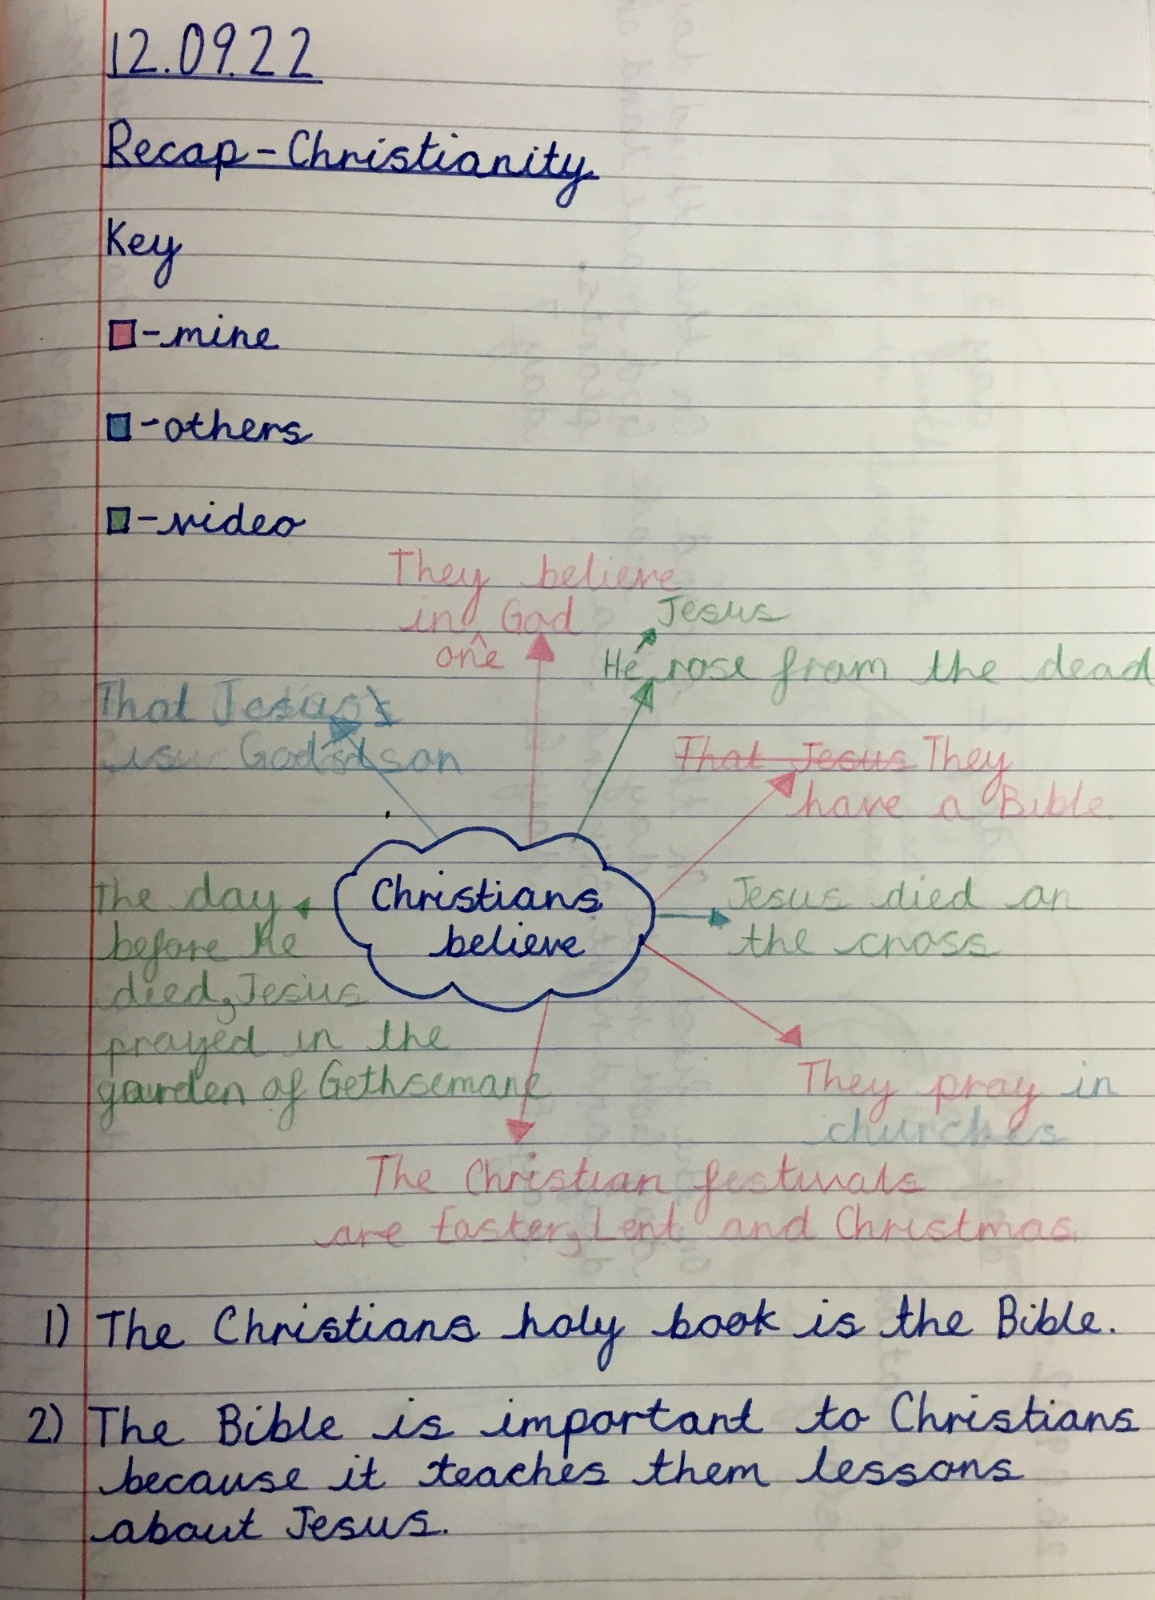 12.09.22
Recap-Christianity
Key
-mine
-others
-video
They believe
in ^ God
one
Jesus
He rose from the dead
That Jesus
is God's son
That Jesus They
have a Bible.
Christians
believe
The day
before he
died, Jesus
prayed in the
garden of Gethsemane
Jesus died on
the cross
They pray in
churches
The Christian festivals
are Easter, Lent and Christmas.
1) The Christians holy book is the Bible.
2) The Bible is important to Christians
because it teaches them lessons
about Jesus.